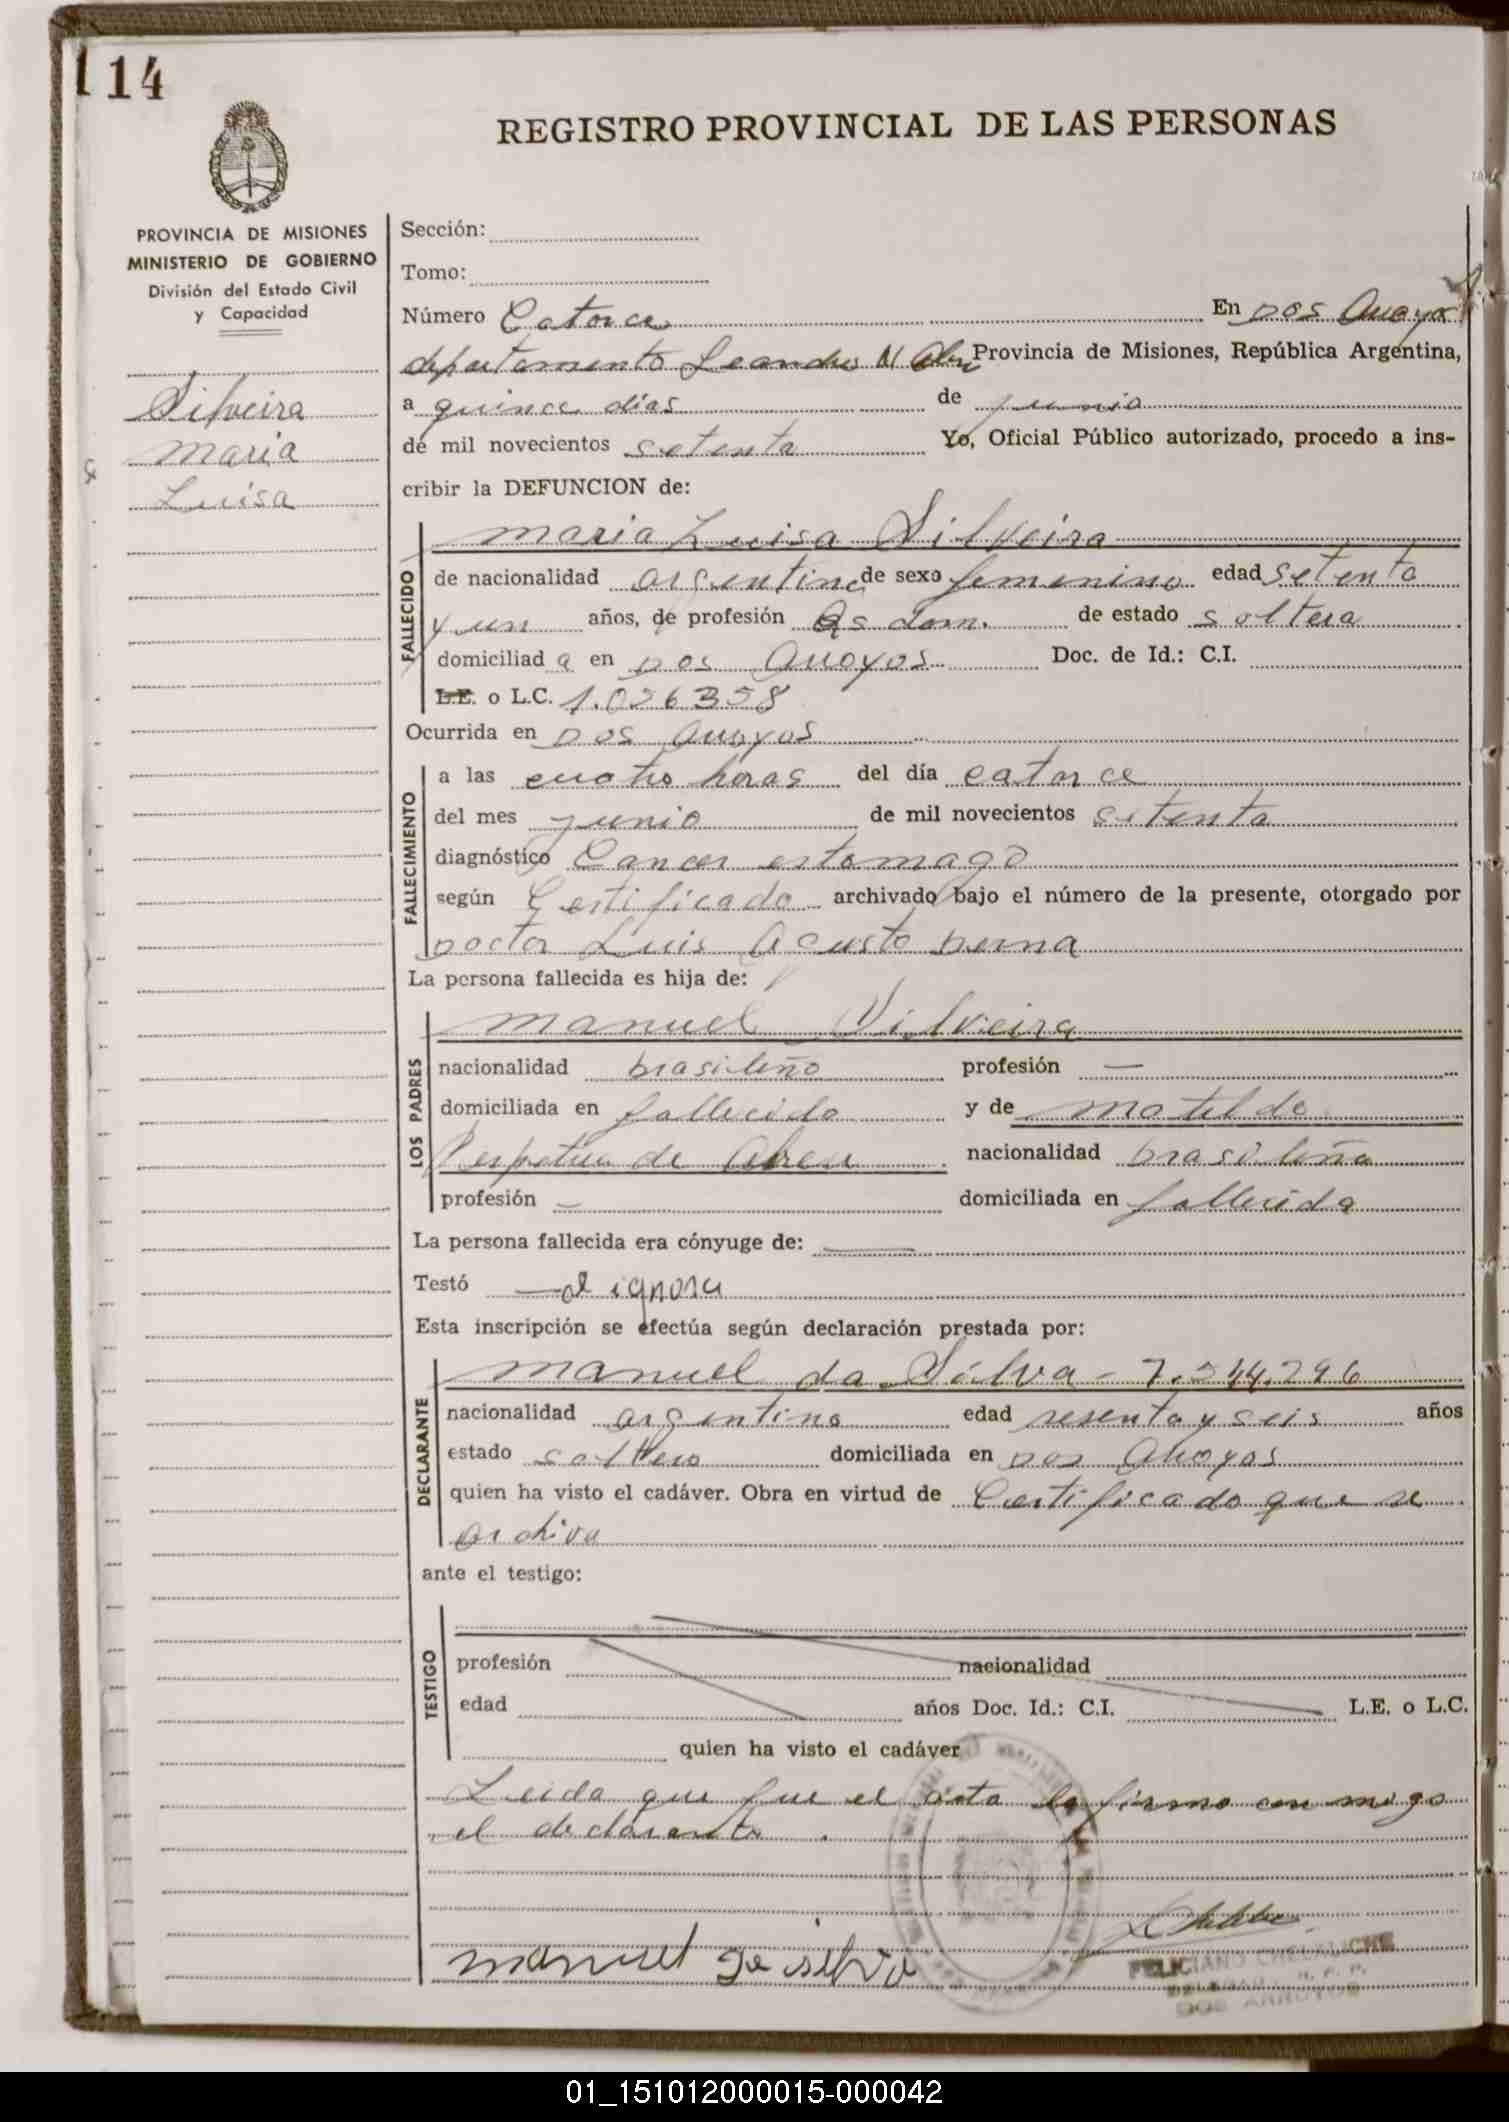 14
REGISTRO PROVINCIAL DE LAS PERSONAS
PROVINCIA DE MISIONES
MINISTERIO DE GOBIERNO
División del Estado Civil
y Capacidad
Silveira
Maria
Luisa
Sección:
Tomo:
Número Catorce En Dos Arroyos
departamento Leandro N Alem Provincia de Misiones, República Argentina,
a quince días de junio
de mil novecientos setenta Yo, Oficial Público autorizado, procedo a ins-
cribir la DEFUNCION de:
FALLECIDO
Maria Luisa Silveira
de nacionalidad argentina de sexo femenino edad setenta
y un años, de profesión Qs dom. de estado soltera
domiciliad a en Dos Arroyos Doc. de Id.: C.I.
L.E. o L.C. 1.026358
Ocurrida en Dos Arroyos
FALLECIMIENTO
a las cuatro horas del día catorce
del mes junio de mil novecientos setenta
diagnóstico Cancer estomago
según Certificado archivado bajo el número de la presente, otorgado por
Doctor Luis Agusto
La persona fallecida es hija de:
LOS PADRES
Manuel Silveira
nacionalidad brasileño profesión —
domiciliada en fallecido y de Matilde
Perpetua de Abreu nacionalidad brasileña
profesión — domiciliada en fallecida
La persona fallecida era cónyuge de: —
Testó — ignora
Esta inscripción se efectúa según declaración prestada por:
DECLARANTE
Manuel da Silva - 7.244.296
nacionalidad argentino edad sesenta y seis años
estado soltero domiciliada en Dos Arroyos
quien ha visto el cadáver. Obra en virtud de Certificado que se
archiva
ante el testigo:
TESTIGO
profesión nacionalidad
edad años Doc. Id.: C.I. L.E. o L.C.
quien ha visto el cadáver
Leida que fue el acta la firma con migo
el declarante.
manuel da silva
FELICIANO
DOS ARROYOS
01_151012000015-000042